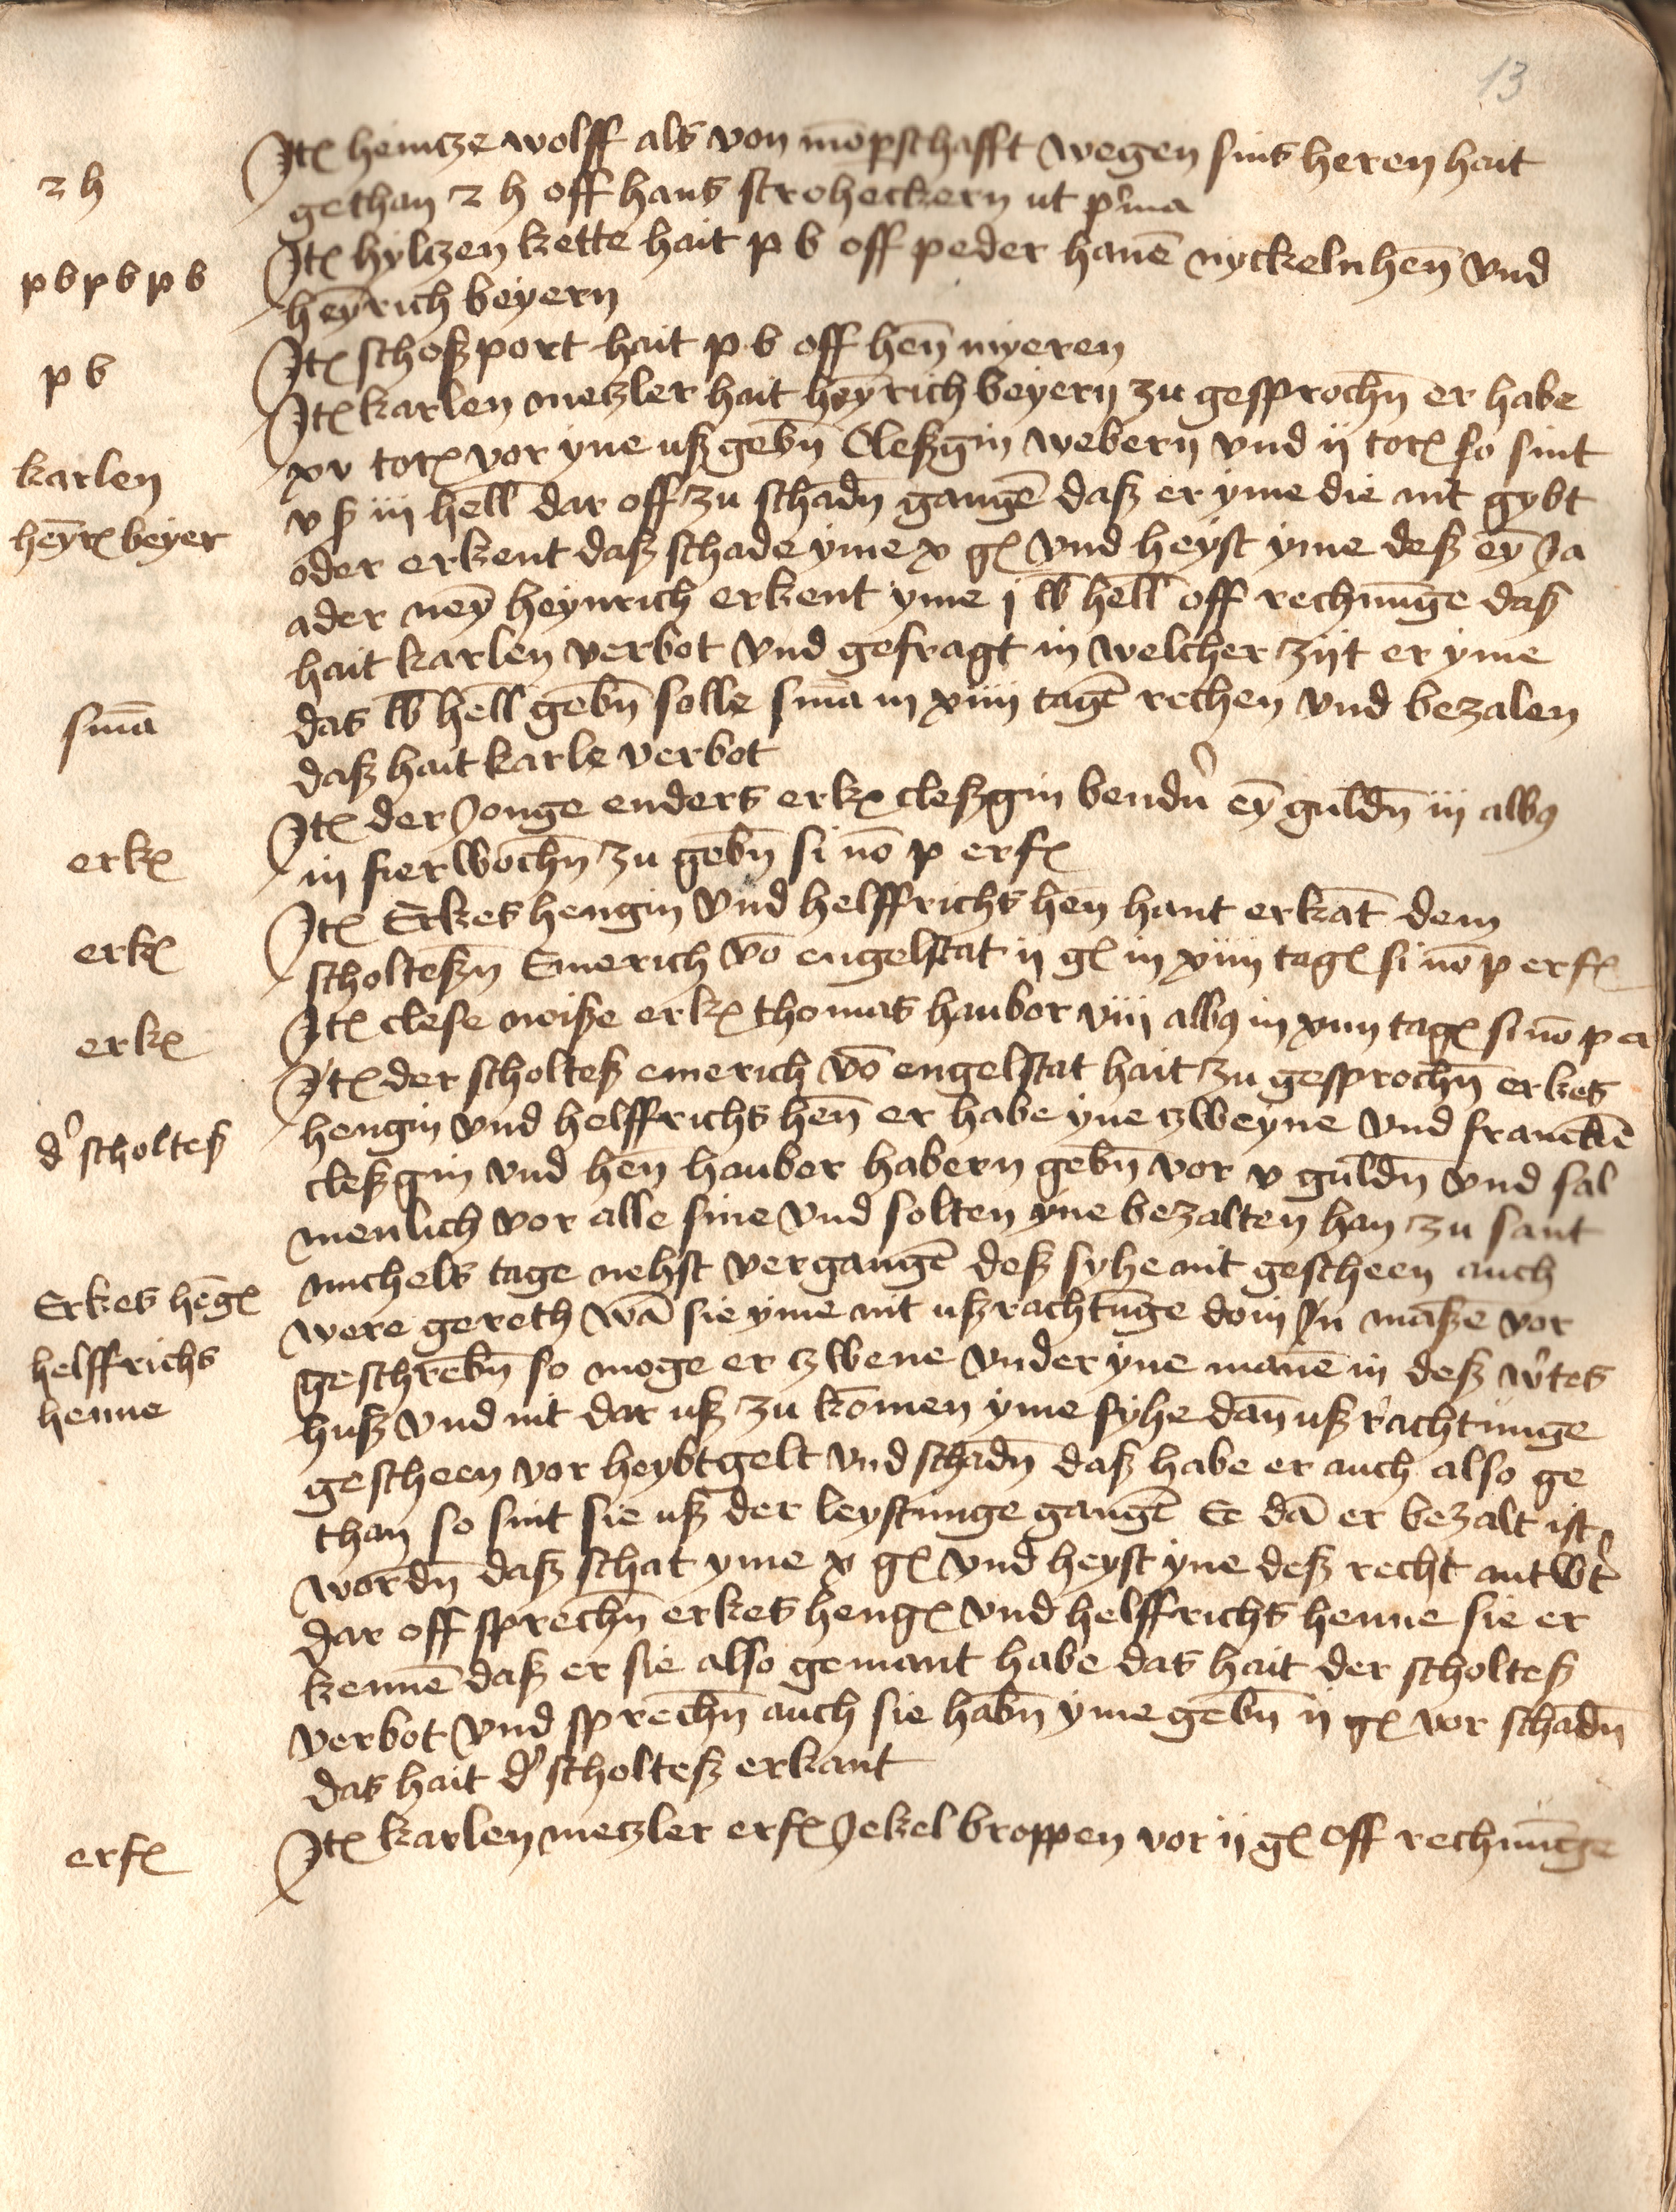 13
2 h
Jtꝭ heintze wolff als von mōpschafft wegen sins heren hait
gethan 2 h off hans stroheckern ut p͛ma
p b p b p b
Jtꝭ hyltzen kette hait p b off peder hauē nyckelnhen̄ vnd
heȳrich beyern
p b
Jtꝭ schoßport hait p b off hen̄ myeren
Jtꝭ karlen metzler hait heȳrich beyern zu gesprochn̄ er habe
karlen
xv torꝭ vor yne ußgebn̄ Cleßgin webern vnd ij torꝭ so sint
v ß iij hell̄ dar off zu schadn̄ gangē daß er yme die nit gybt
heȳrꝭ beyer
oder erkent daß schade yme x gꝭ vnd heyst yme deß eȳ Ja
ader neȳ heynrich erkent yme j lb hell̄ off rechnūge das
hait karlen verbot vnd gefragt in welcher zijt er yme
smā
das lb hell̄ gebn̄ solle smā in xiiij tagē rechen vnd bezalen
daß hait karle verbot
erkꝭ
Jtꝭ der Jonge enders erkꝭ cleßgin bendn͛ eȳ guldn̄ iij albꝰ
in fier wochn̄ zu gebn̄ si nō p erfꝭ
erkꝭ
Jtꝭ Erkes hengin vnd helffrichs hen̄ hant erkāt dem
scholteßn̄ Emerich vō engelstat ij gꝭ in xiiij tagꝭ si nō p erfꝭ
erkꝭ
Jtꝭ clese neiße erkꝭ thomas haubor viij albꝰ in xiiij tagꝭ si nō p er
Jtꝭ der scholteß emerich vō engelstat hait zu gesprochn̄ erkes
d͛ scholteß
hengin vnd helffrichs hen̄ er habe yne zweyne vnd franckē
cleßgin vnd hen̄ hauber habern gebn̄ vor v guldn̄ vnd sal
menlich vor alle sine vnd solten yne bezalten han zu sant
michels tage nehst vergangē deß syhe nit gescheen auch
Erkes hēgꝭ
were gereth wā sie yme nit ußrachtūge doin Jn maßē vor
helffrichs
geschrebn̄ so moge er zwene vnder yne manē in deß w͛tes
henne
huß vnd nit dar uß zu komen yme syhe dan̄ ußrachtunge
gescheen vor heybtgelt vnd schadn̄ daß habe er auch also ge
than so sint sie uß der leystunge gangē Ee dā er bezalt ist
wordn̄ daß schat yme x gꝭ vnd heyst yne deß recht antwt͛
dar off sprechn̄ erkes hengꝭ vnd helffrichs henne sie er
kennē daß er sie also gemant habe das hait der scholteß
verbot vnd sprechn̄ auch sie habn̄ yme gebn̄ ij gꝭ vor schadn̄
das hait d͛ scholteß erkant
erfꝭ
Jtꝭ karlen metzler erfꝭ Jekel broppen vor ij gꝭ off rechnūge